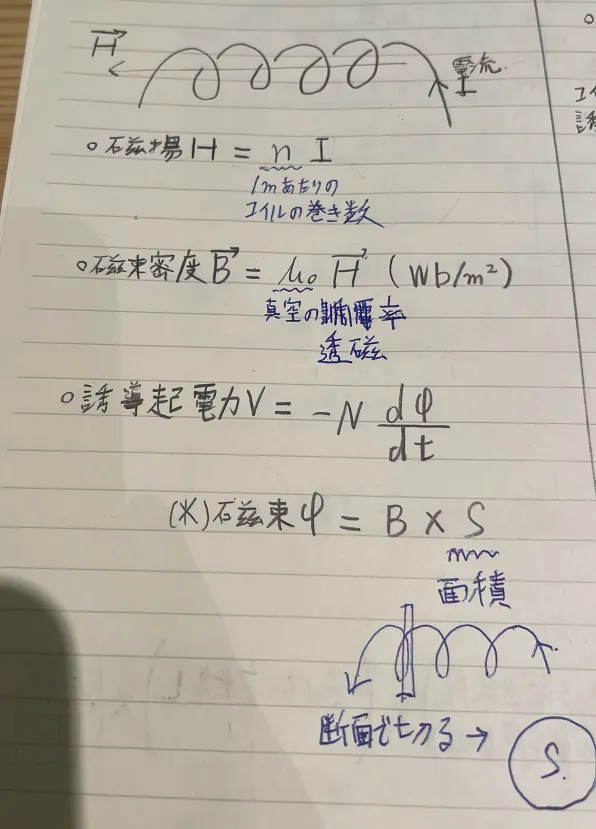 H→
電流
I
○磁場H = n I
1mあたりの
コイルの巻き数
○磁束密度B→ = μ₀ H→ (Wb/m²)
真空の 率
透磁
○誘導起電力V = -N dφ/dt
(※)磁束φ = B × S
面積
断面で切る→
S.
○
コイ
誘